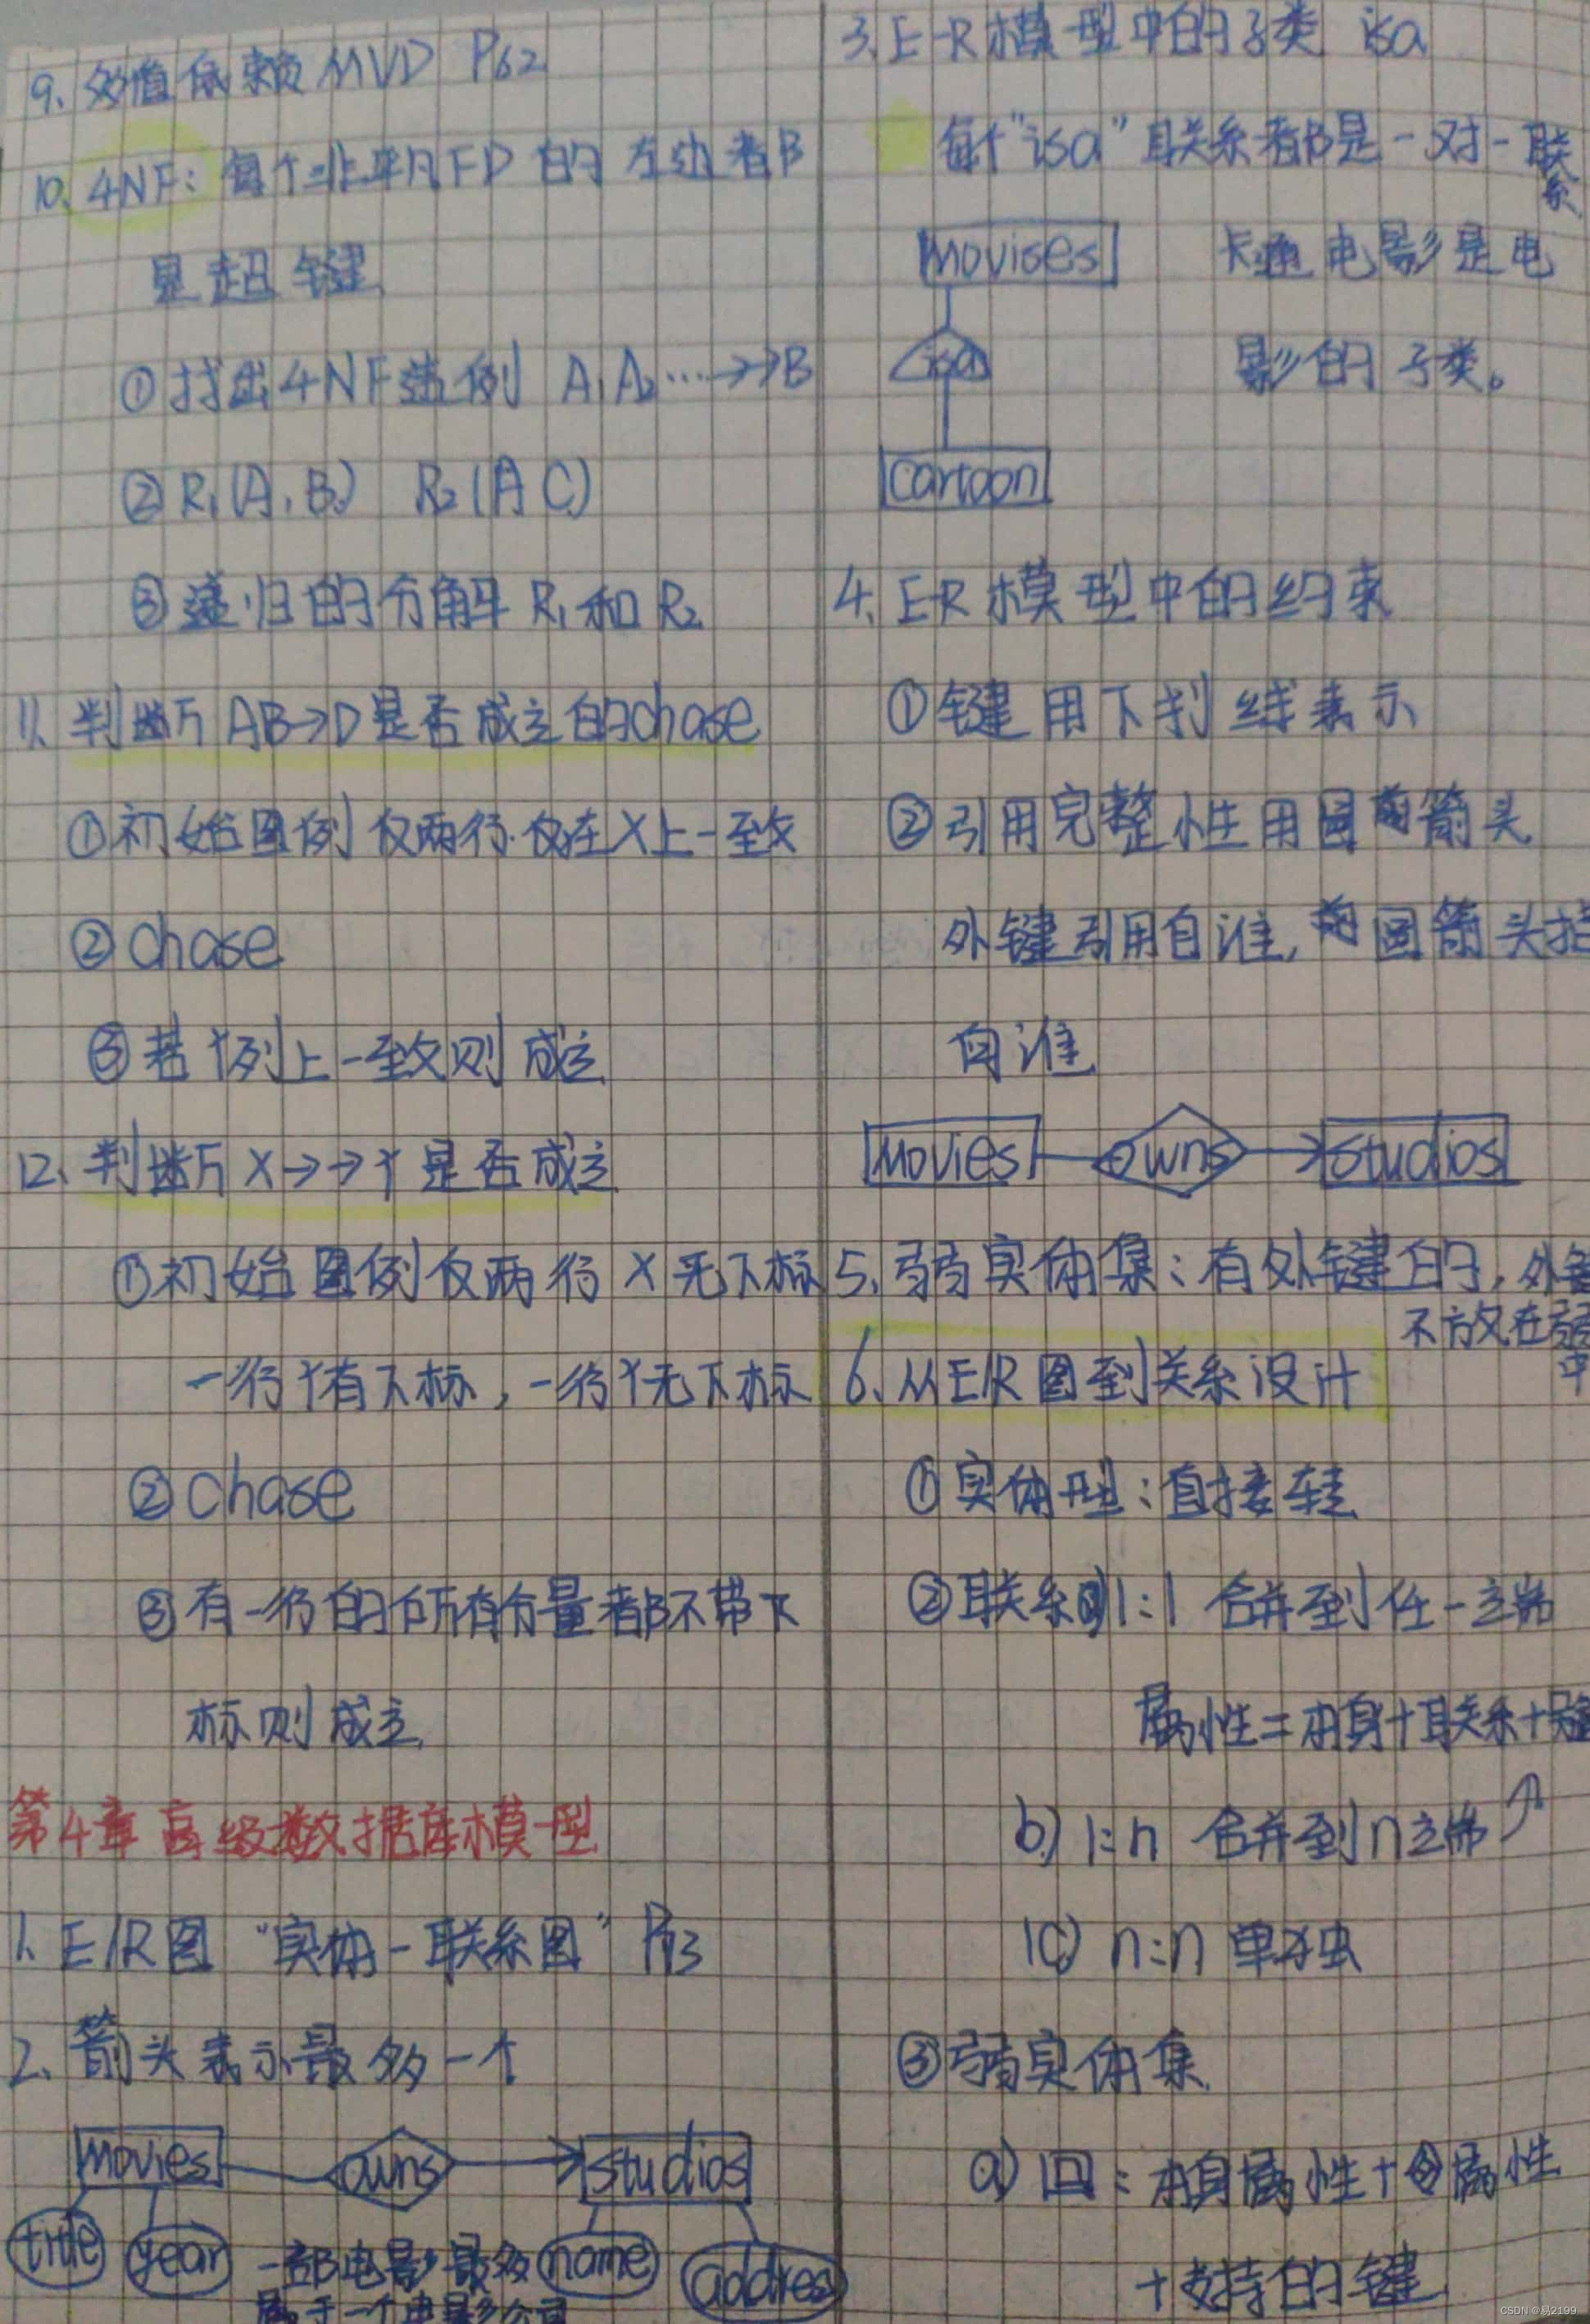 9. 多值依赖 MVD P62
10. 4NF: 每个非平凡FD的左边都
是超键
① 找出4NF违例 A₁A₂…→→B
② R₁(A, B) R₂(A C)
③ 递归的分解 R₁和R₂
11. 判断 AB→D是否成立的chase
① 初始图例 仅两行.仅在X上一致
② chase
③ 若Y列上一致则成立
12. 判断 X→→Y 是否成立
① 初始图例仅两行 X无下标
一行Y有下标, 一行Y无下标
② chase
③ 有一行的所有分量都不带下
标则成立
第4章 高级数据库模型
1. E/R图 “实体-联系图” P73
2. 箭头表示最多一个
Movies owns studios
title year 一部电影最多 name addres
属于一个电影公司
3. E-R模型中的子类 isa
每个"isa"联系都是一对一联
系
Movises 卡通电影是电
isa 影的子类。
Cartoon
4. E-R模型中的约束
① 键用下划线表示
② 引用完整性用圆箭头
外键引用自谁, 圆箭头指
向谁
Movies owns studios
5. 弱实体集: 有外键的, 外键
不放在弱
中
6. 从E/R图到关系设计
① 实体型: 直接转
② 联系 1:1 合并到任一端
属性=本身+联系+键
b) 1:n 合并到n端
c) n:n 单独
③ 弱实体集
a) 回: 本身属性+属性
+支持的键
CSDN @易2199